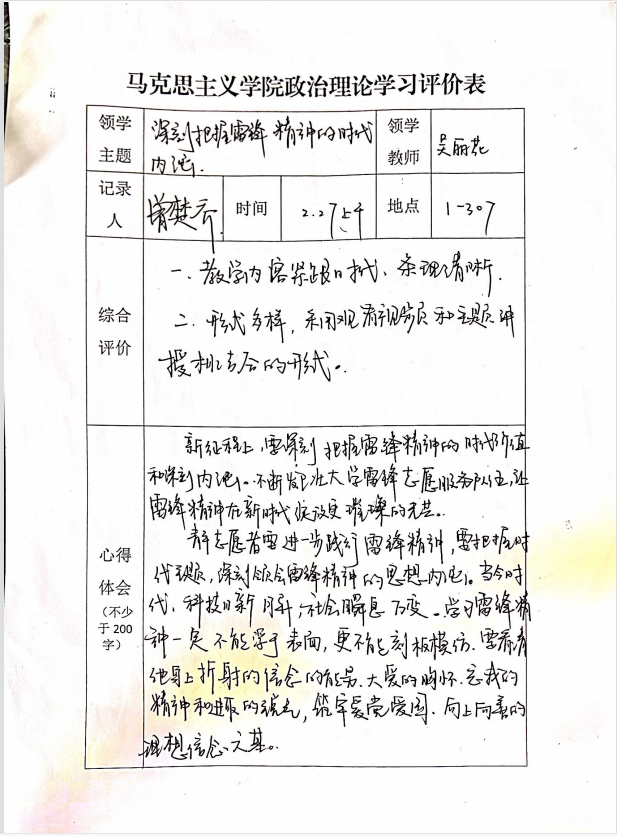 马克思主义学院政治理论学习评价表
领学主题
深刻把握雷锋精神的时代
内涵.
领学教师
吴丽花
记录人
曾楚乔
时间
2.27上午
地点
1-307
综合评价
一. 教学内容紧跟时代、条理清晰.
二. 形式多样, 采用观看视频和主题讲
授相结合的形式。
心得体会
(不少于200字)
新征程上, 要深刻把握雷锋精神的时代价值
和深刻内涵。不断发展壮大学雷锋志愿服务队伍, 让
雷锋精神在新时代绽放更璀璨的光芒。
志愿者要进一步践行雷锋精神, 要把握时
代主题, 深刻领会雷锋精神的思想内涵。当今时
代, 科技日新月异, 社会瞬息万变。学习雷锋精
神一定不能浮于表面, 更不能刻板模仿. 要看看
他身上折射的信念的能量、大爱的胸怀、忘我的
精神和进取的锐气, 筑牢爱党爱国、向上向善的
理想信念之基。